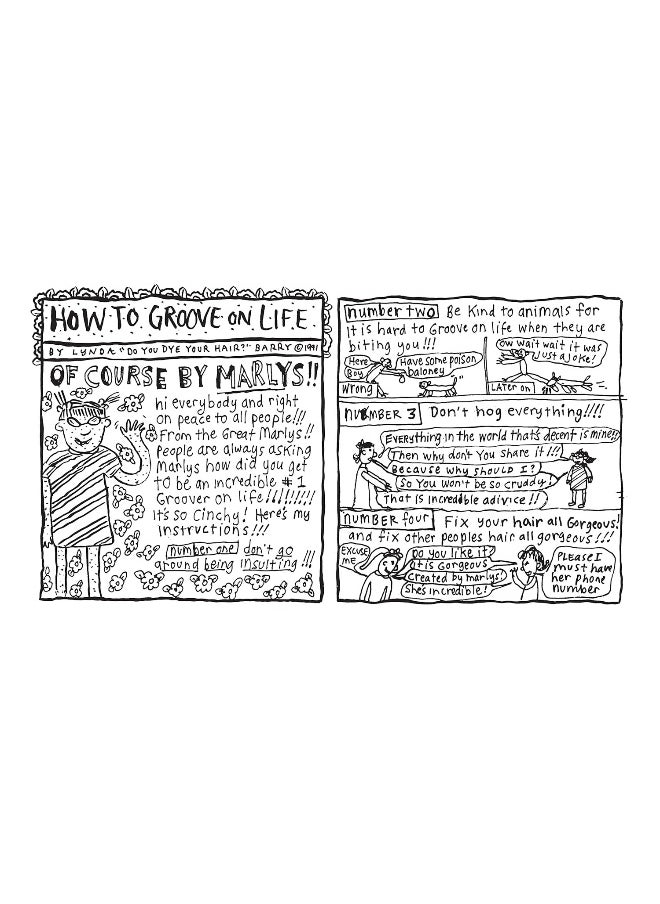 HOW TO GROOVE ON LIFE
BY LYNDA "DO YOU DYE YOUR HAIR?" BARRY © 1991
OF COURSE BY MARLYS!!
hi everybody and right
on peace to all people!!!
From the Great Marlys!!
People are always asking
Marlys how did you get
to be an incredible #1
Groover on life!!!!!!!!!
It's so Cinchy! Here's my
instructions!!!
number one don't go
around being insulting!!!
number two Be Kind to animals for
it is hard to Groove on life when they are
biting you!!!
Here
Boy
Have some poison
baloney
Wrong
OW wait wait it was
Just a Joke!
LATER ON
NUMBER 3 Don't hog everything!!!!
EVERYthing in the world that's decent is mine!!
Then why don't You share it!!!
Because why should I?
So You won't be so cruddy
That is incredible adivice!!
NUMBER four Fix your hair all Gorgeous!
and fix other peoples hair all gorgeous!!!
EXCUSE
ME
Do you like it?
it is Gorgeous
Created by marlys!
She's incredible!
PLEASE I
must have
her phone
number